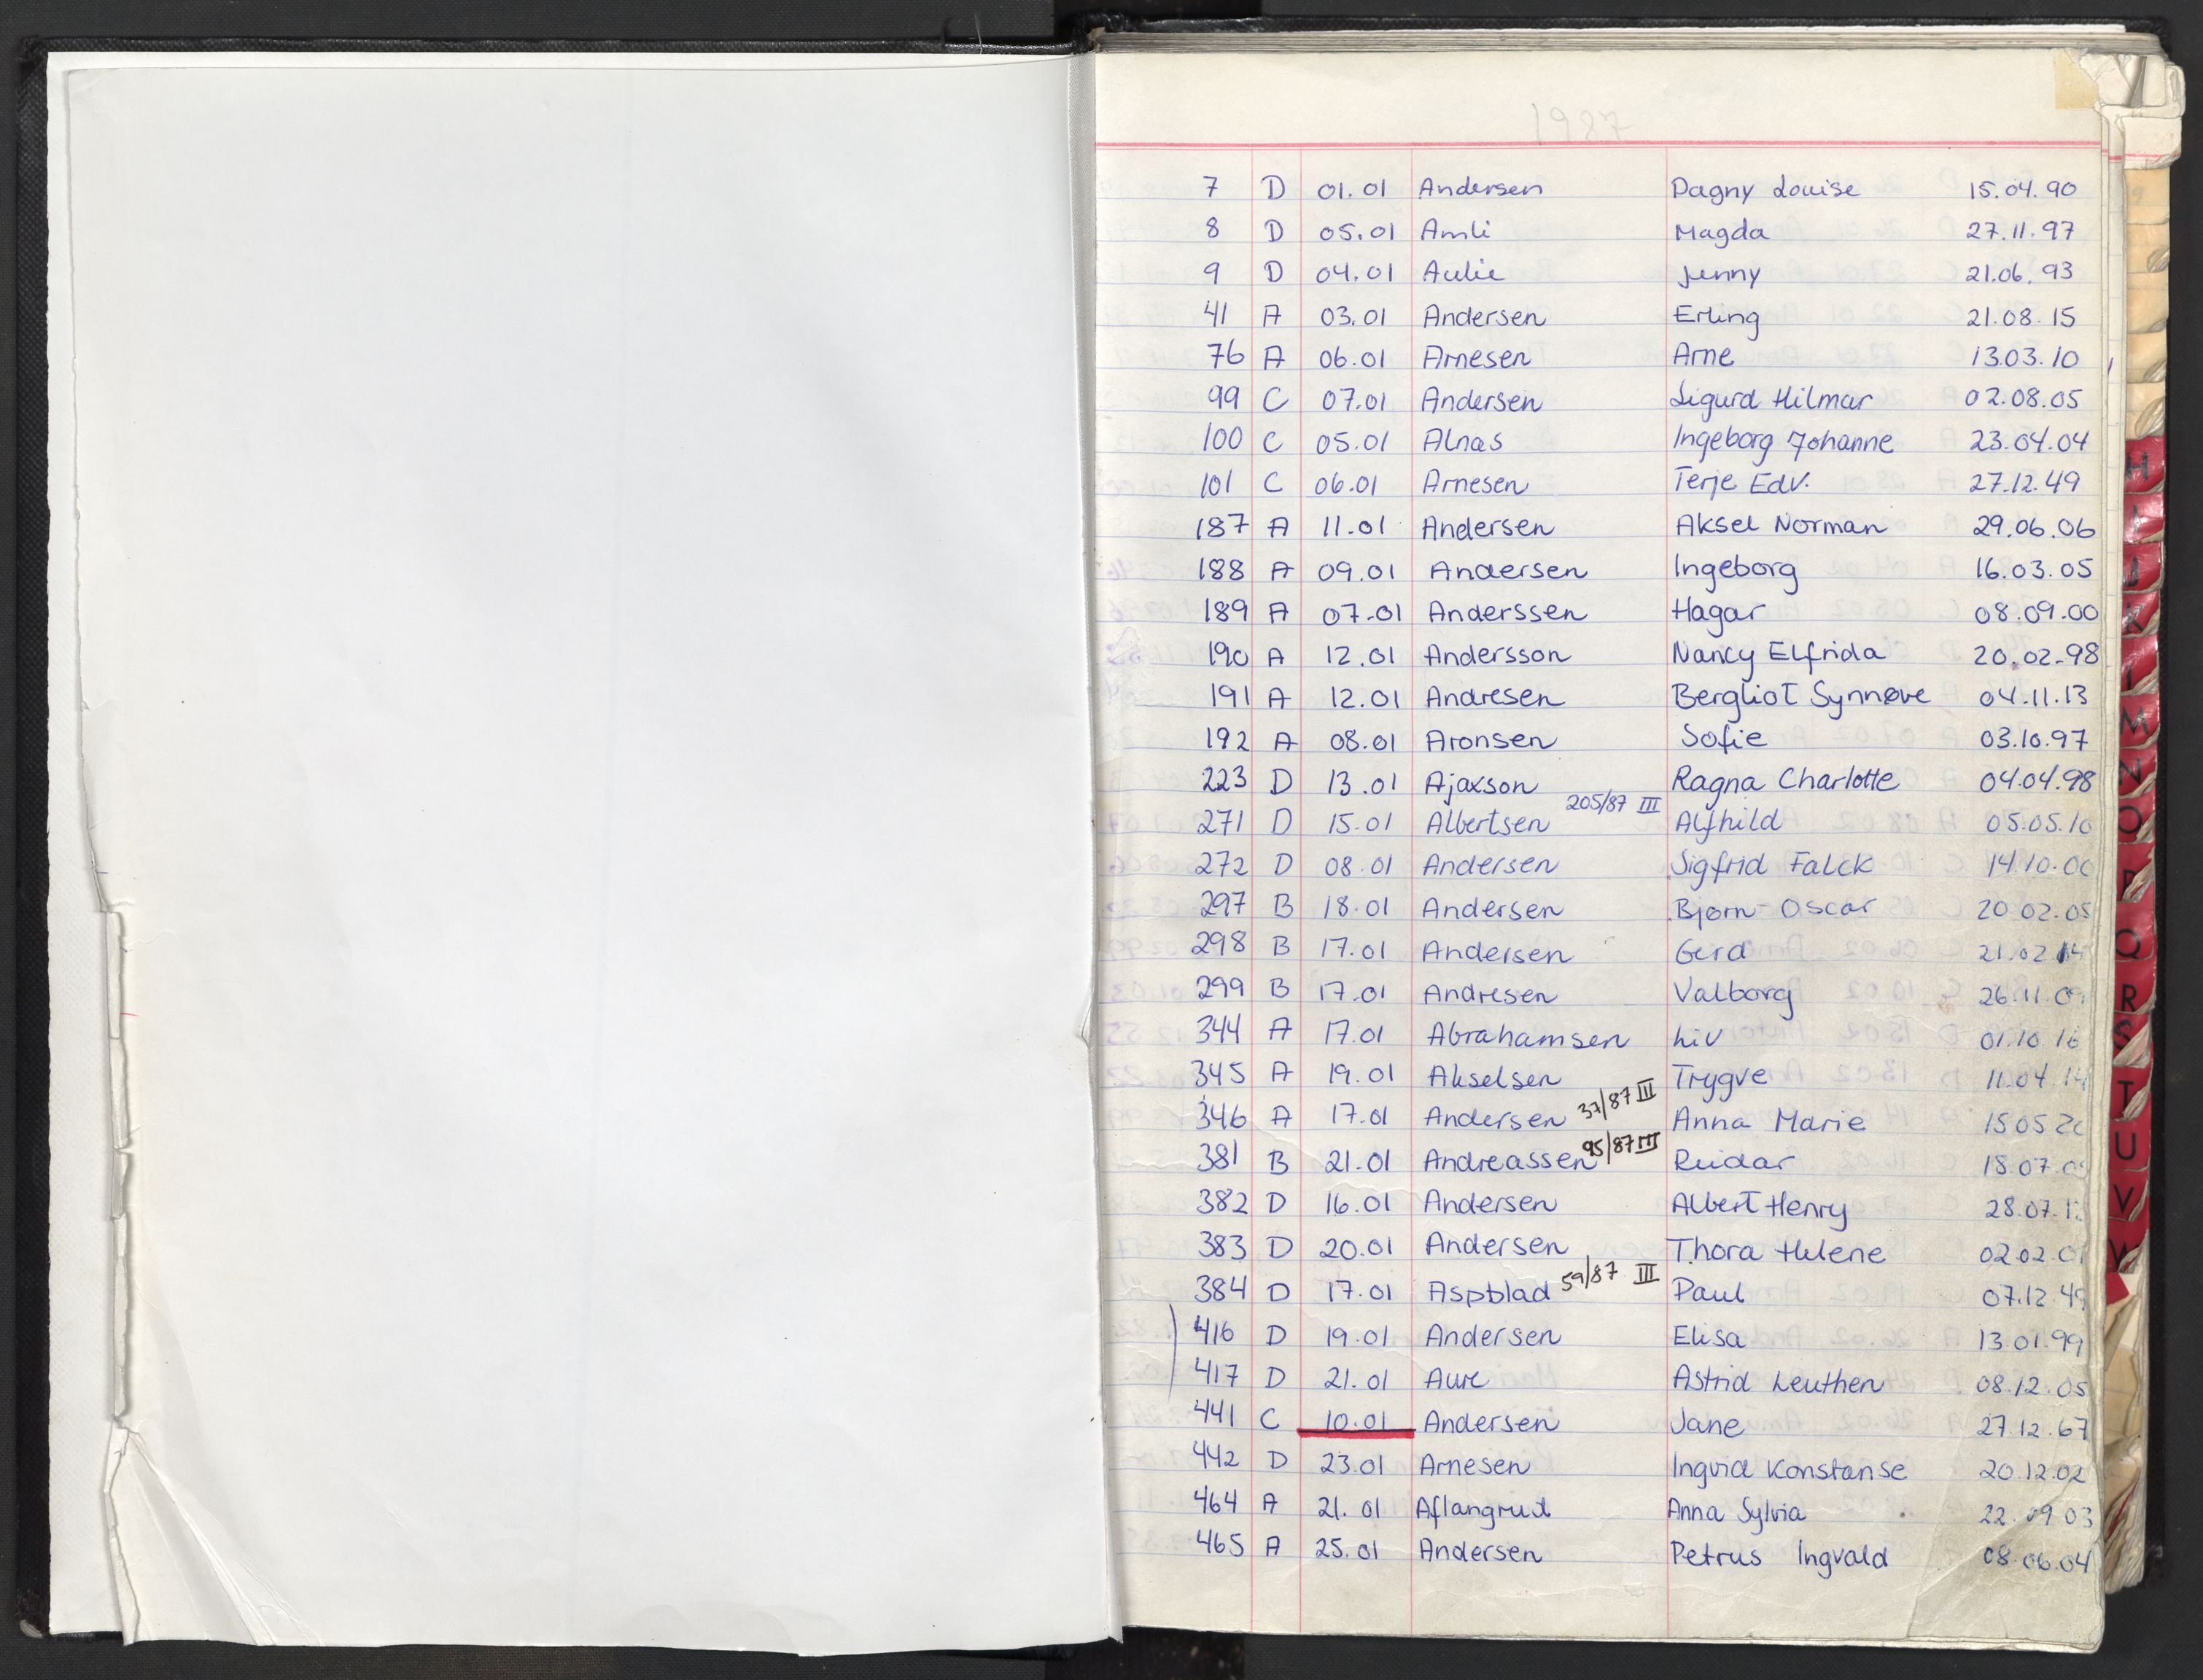 1987
7 D 01.01 Andersen Dagny Louise 15.04.90
8 D 05.01 Amli Magda 27.11.97
9 D 04.01 Aulie Jenny 21.06.93
41 A 03.01 Andersen Erling 21.08.15
76 A 06.01 Arnesen Arne 13.03.10
99 C 07.01 Andersen Sigurd Hilmar 02.08.05
100 C 05.01 Alnas Ingeborg Johanne 23.04.04
101 C 06.01 Arnesen Terje Edv. 27.12.49
187 A 11.01 Andersen Aksel Norman 29.06.06
188 A 09.01 Andersen Ingeborg 16.03.05
189 A 07.01 Anderssen Hagar 08.09.00
190 A 12.01 Andersson Nancy Elfrida 20.02.98
191 A 12.01 Andresen Bergliot Synnøve 04.11.13
192 A 08.01 Aronsen Sofie 03.10.97
223 D 13.01 Ajaxson Ragna Charlotte 04.04.98
271 D 15.01 Albertsen 205/87 III Alfhild 05.05.10
272 D 08.01 Andersen Sigfrid Falck 14.10.00
297 B 18.01 Andersen Bjørn-Oscar 20.02.05
298 B 17.01 Andersen Gerd 21.02.14
299 B 17.01 Andresen Valborg 26.11.09
344 A 17.01 Abrahamsen Liv 01.10.16
345 A 19.01 Akselsen Trygve 11.04.14
346 A 17.01 Andersen 37/87 III Anna Marie 15.05.20
381 B 21.01 Andreassen 95/87 III Reidar 18.07.
382 D 16.01 Andersen Albert Henry 28.07.
383 D 20.01 Andersen Thora Helene 02.02.
384 D 17.01 Aspblad 59/87 III Paul 07.12.49
416 D 19.01 Andersen Elisa 13.01.99
417 D 21.01 Aure Astrid Leuthen 08.12.05
441 C 10.01 Andersen Jane 27.12.67
442 D 23.01 Arnesen Ingvid Konstanse 20.12.02
464 A 21.01 Aflangrud Anna Sylvia 22.09.03
465 A 25.01 Andersen Petrus Ingvald 08.06.04
H
I
J
K
L
M
N
O
P
Q
R
S
T
U
V
W